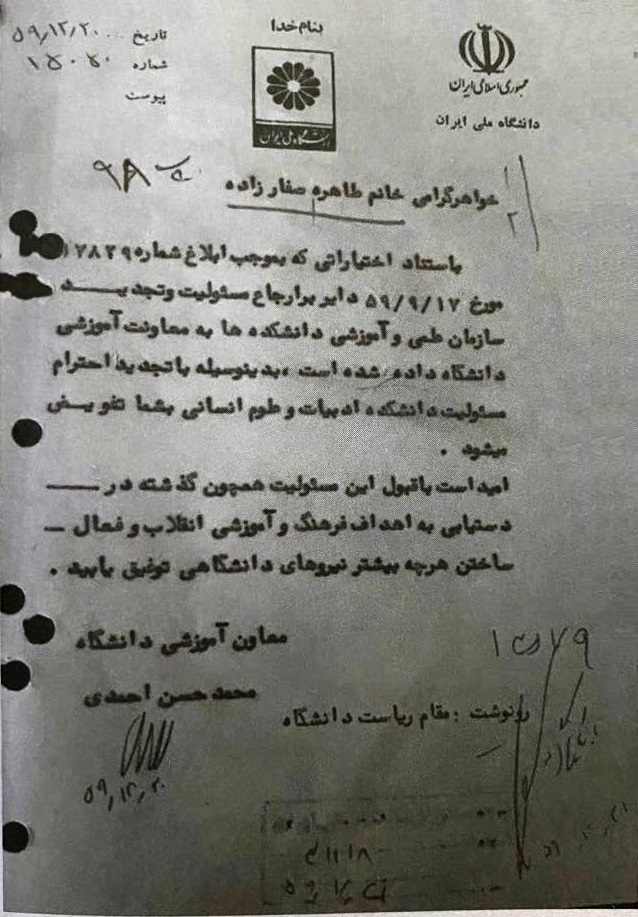 بنام خدا
جمهوری اسلامی ایران
دانشگاه ملی ایران
دانشگاه ملی ایران
تاریخ ۵۹/۱۲/۲۰
شماره ۱۵۰۵۰
پیوست
خواهرگرامی خانم طاهره صفارزاده
باستناد اختیاراتی که بموجب ابلاغ شماره ۱۷۸۳۹
مورخ ۵۹/۹/۱۷ دایر برارجاع مسئولیت وتجدیـــد
سازمان علمی و آموزشی دانشکده ها به معاونت آموزشی
دانشگاه داده شده است ،بدینوسیله باتجدید احترام
مسئولیت دانشکده ادبیات و علوم انسانی بشما تفویـض
میشود .
امید است باقبول این مسئولیت همچون گذشته در ـــ
دستیابی به اهداف فرهنگ و آموزشی انقلاب و فعال ـ
ساختن هرچه بیشتر نیروهای دانشگاهی توفیق یابید .
معاون آموزشی دانشگاه
محمدحسن احمدی
۵۹/۱۲/۲۰
رونوشت : مقام ریاست دانشگاه